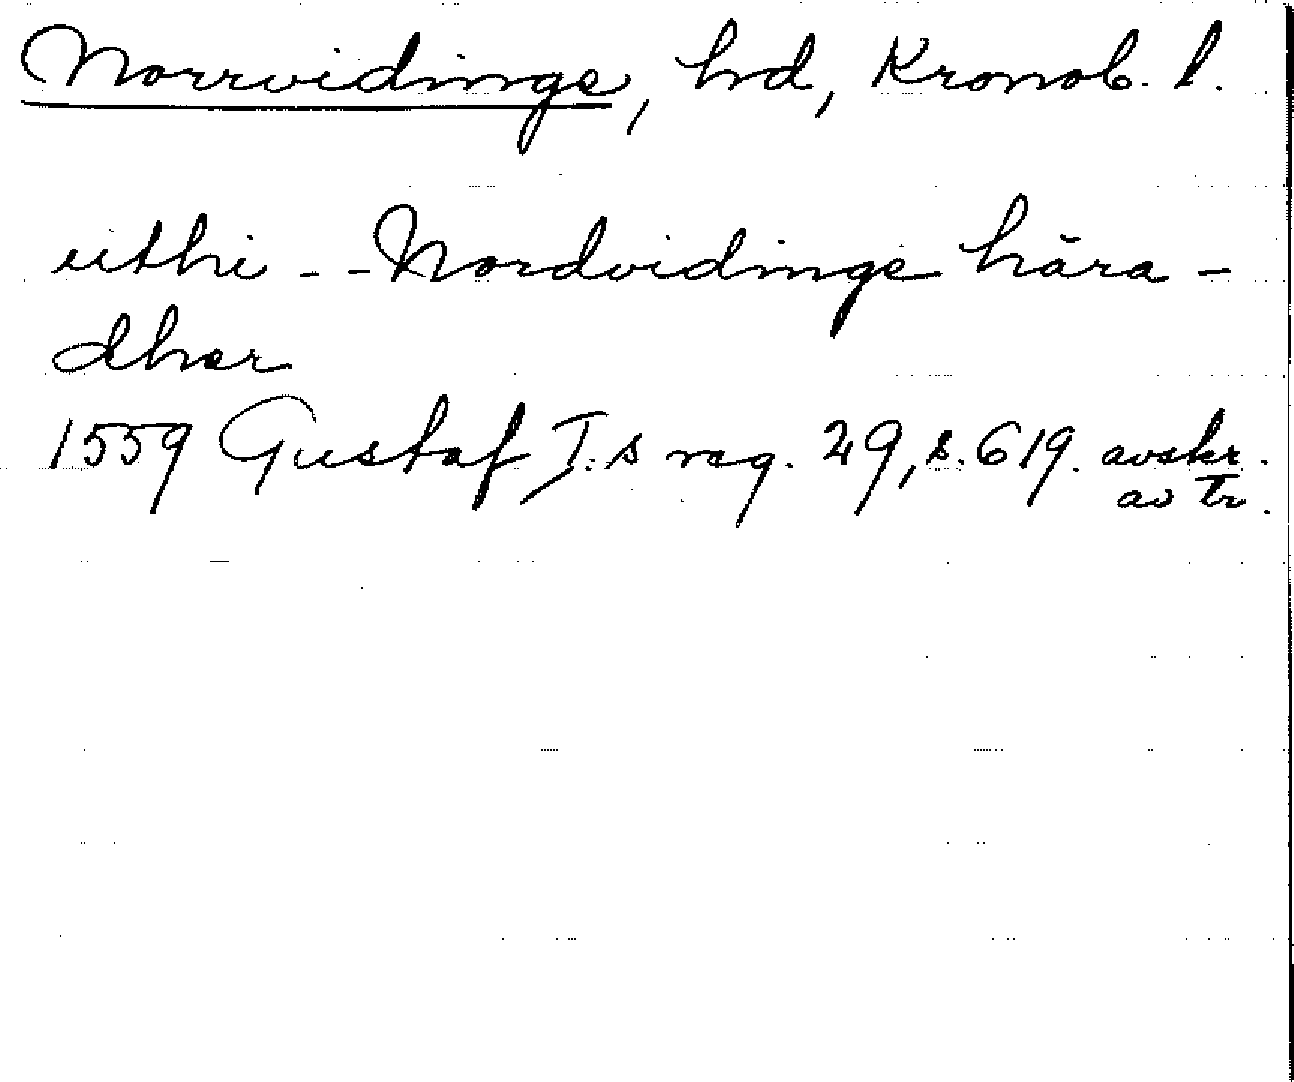 Norrvidinge, hd, Kronob. l.
uthi - - Nordvidinge hära -
dher
1559 Gustaf I:s reg. 29, s. 619. avskr.
av tr.